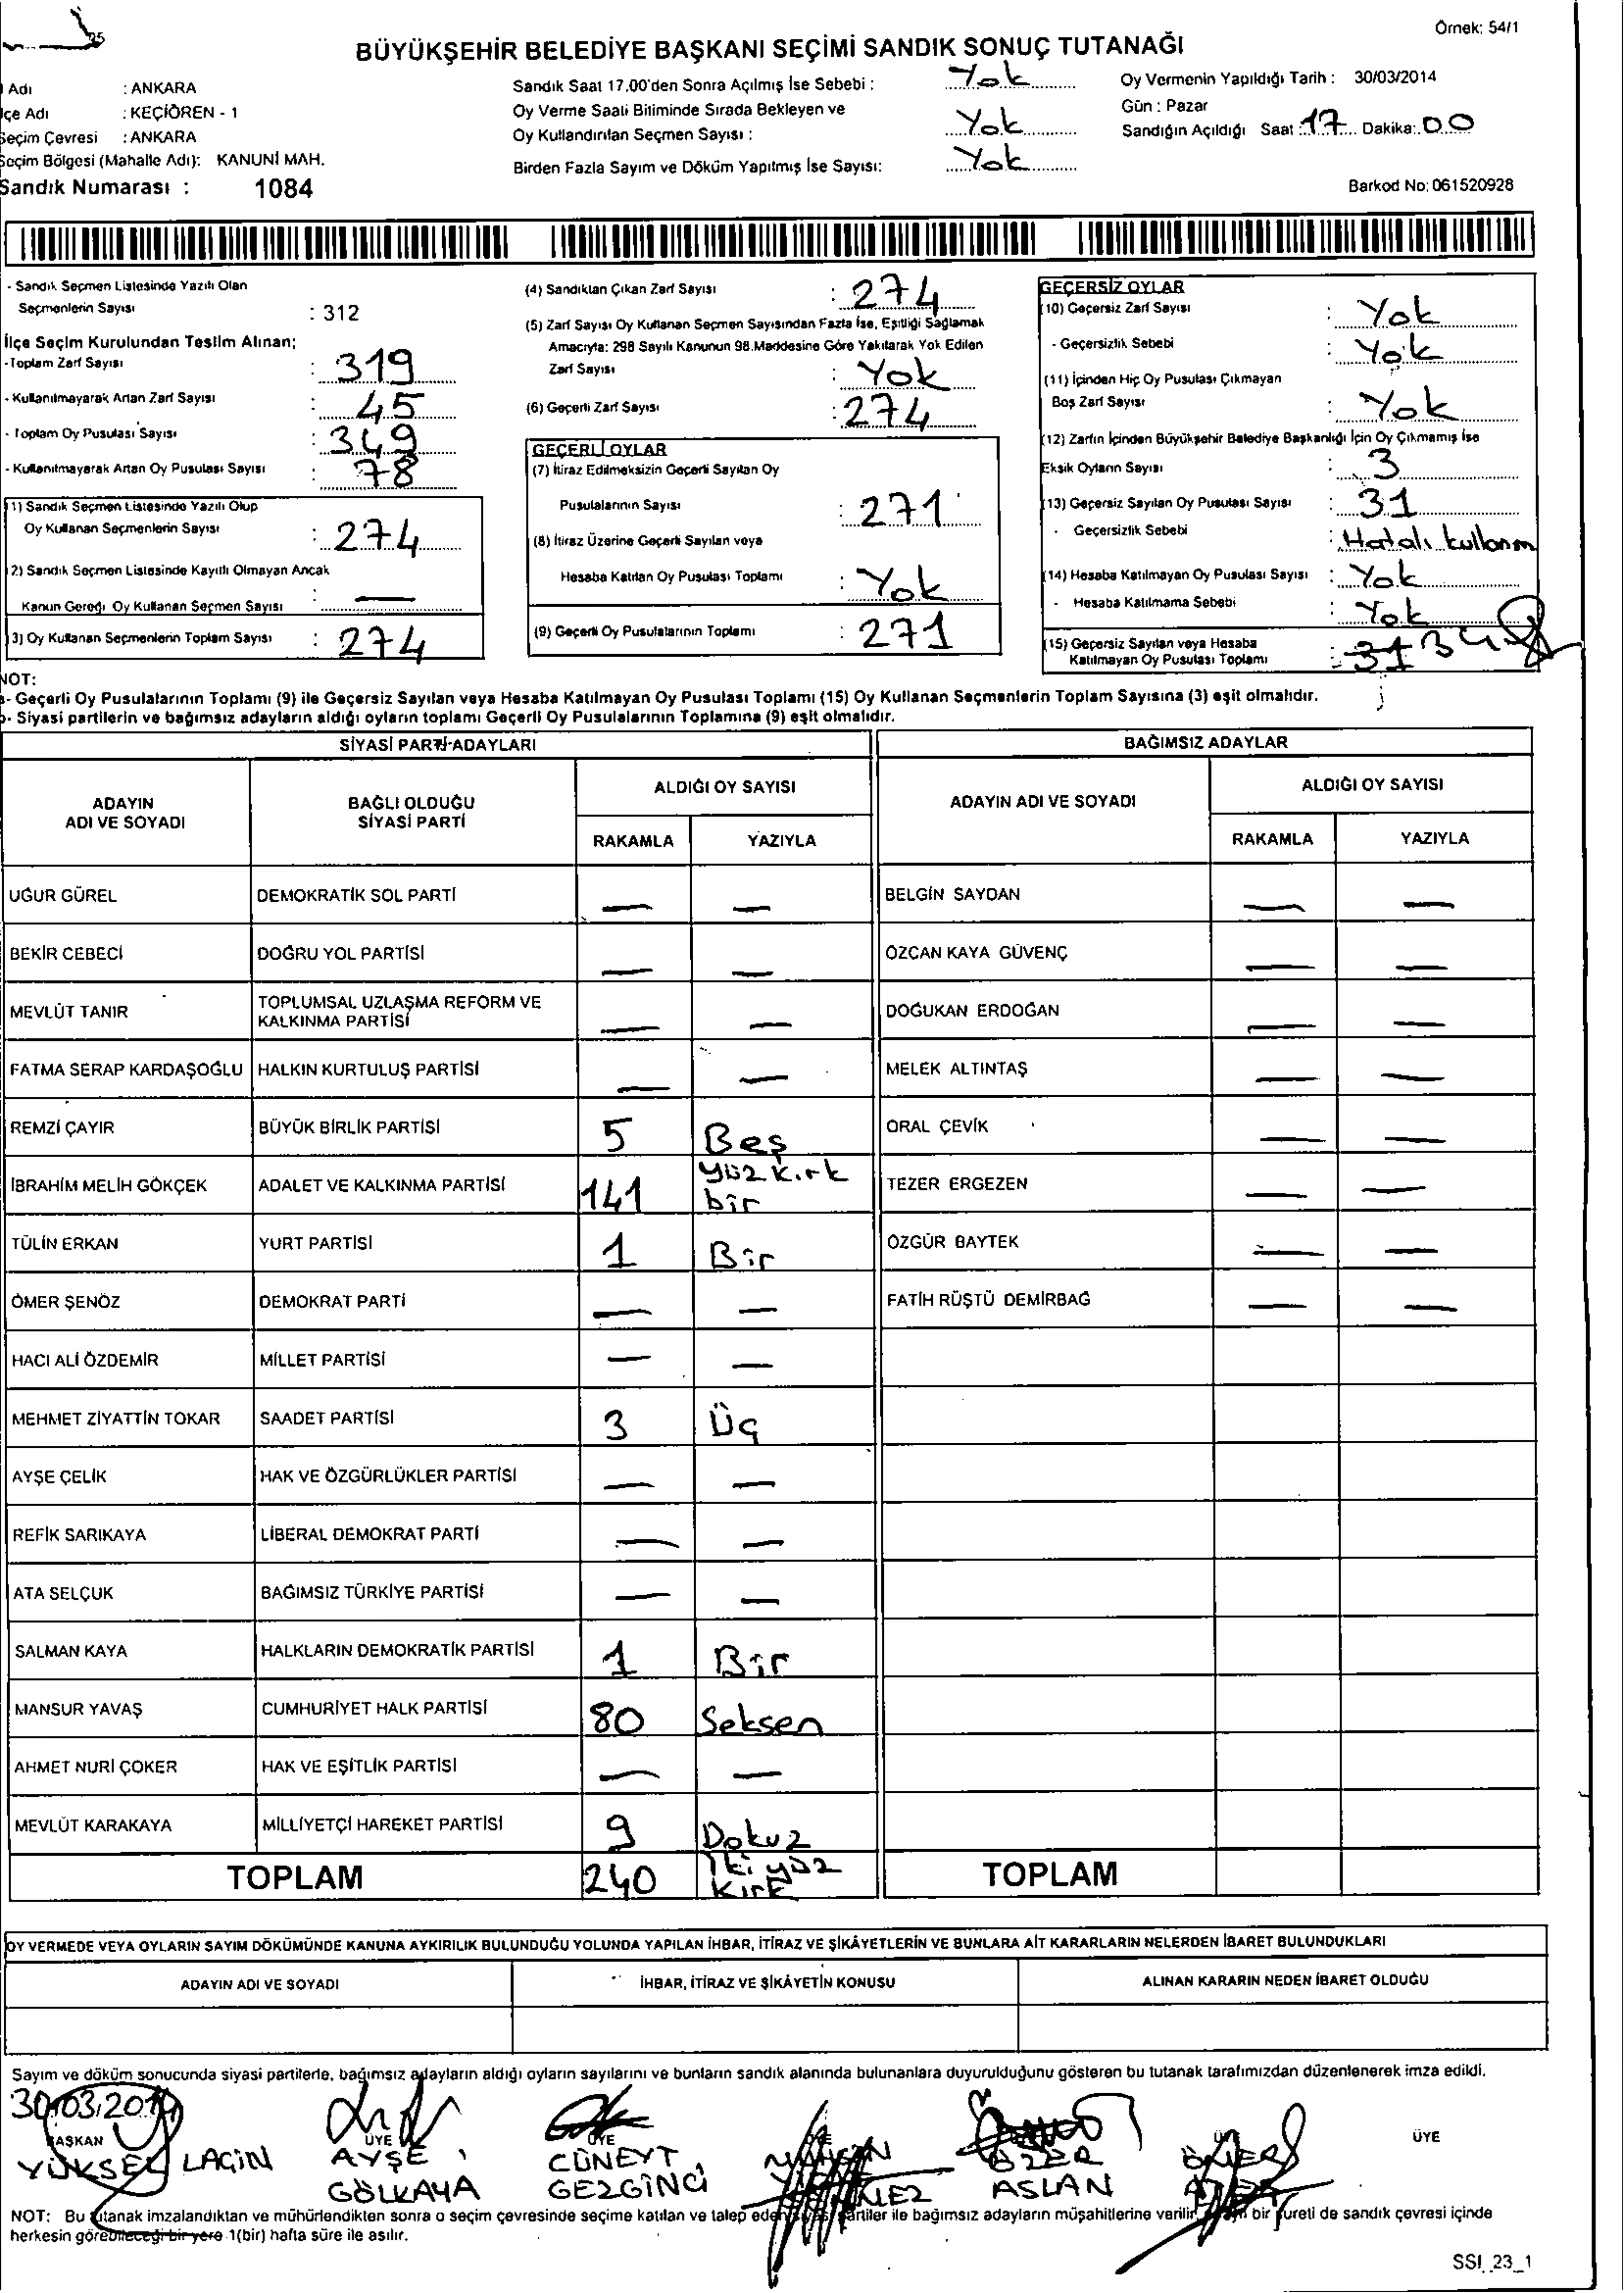 Örnek: 54/1
BÜYÜKŞEHİR BELEDİYE BAŞKANI SEÇİMİ SANDIK SONUÇ TUTANAĞI
Adı : ANKARA
lçe Adı : KEÇİÖREN - 1
Seçim Çevresi : ANKARA
Seçim Bölgesi (Mahalle Adı): KANUNİ MAH.
Sandık Numarası : 1084
Sandık Saat 17.00'den Sonra Açılmış İse Sebebi : Yok
Oy Verme Saati Bitiminde Sırada Bekleyen ve
Oy Kullandırılan Seçmen Sayısı : Yok
Birden Fazla Sayım ve Döküm Yapılmış İse Sayısı: Yok
Oy Vermenin Yapıldığı Tarih : 30/03/2014
Gün : Pazar
Sandığın Açıldığı Saat : 17 Dakika: 00
Barkod No: 061520928
- Sandık Seçmen Listesinde Yazılı Olan
Seçmenlerin Sayısı : 312
İlçe Seçim Kurulundan Teslim Alınan;
-Toplam Zarf Sayısı : 319
- Kullanılmayarak Artan Zarf Sayısı : 45
- Toplam Oy Pusulası Sayısı : 349
- Kullanılmayarak Artan Oy Pusulası Sayısı : 78
1) Sandık Seçmen Listesinde Yazılı Olup
Oy Kullanan Seçmenlerin Sayısı : 274
2) Sandık Seçmen Listesinde Kayıtlı Olmayan Ancak
Kanun Gereği Oy Kullanan Seçmen Sayısı : —
3) Oy Kullanan Seçmenlerin Toplam Sayısı : 274
(4) Sandıktan Çıkan Zarf Sayısı : 274
(5) Zarf Sayısı Oy Kullanan Seçmen Sayısından Fazla İse, Eşitliği Sağlamak
Amacıyla: 298 Sayılı Kanunun 98.Maddesine Göre Yakılarak Yok Edilen
Zarf Sayısı : Yok
(6) Geçerli Zarf Sayısı : 274
GEÇERLİ OYLAR
(7) İtiraz Edilmeksizin Geçerli Sayılan Oy
Pusulalarının Sayısı : 271
(8) İtiraz Üzerine Geçerli Sayılan veya
Hesaba Katılan Oy Pusulası Toplamı : Yok
(9) Geçerli Oy Pusulalarının Toplamı : 271
GEÇERSİZ OYLAR
(10) Geçersiz Zarf Sayısı : Yok
- Geçersizlik Sebebi : Yok
(11) İçinden Hiç Oy Pusulası Çıkmayan
Boş Zarf Sayısı : Yok
(12) Zarfın İçinden Büyükşehir Belediye Başkanlığı İçin Oy Çıkmamış İse
Eksik Oyların Sayısı : 3
(13) Geçersiz Sayılan Oy Pusulası Sayısı : 31
- Geçersizlik Sebebi : Hatalı kullanım
(14) Hesaba Katılmayan Oy Pusulası Sayısı : Yok
- Hesaba Katılmama Sebebi : Yok
(15) Geçersiz Sayılan veya Hesaba
Katılmayan Oy Pusulası Toplamı : 31 34
NOT:
a- Geçerli Oy Pusulalarının Toplamı (9) ile Geçersiz Sayılan veya Hesaba Katılmayan Oy Pusulası Toplamı (15) Oy Kullanan Seçmenlerin Toplam Sayısına (3) eşit olmalıdır.
b- Siyasi partilerin ve bağımsız adayların aldığı oyların toplamı Geçerli Oy Pusulalarının Toplamına (9) eşit olmalıdır.
SİYASİ PARTİ ADAYLARI BAĞIMSIZ ADAYLAR
ADAYIN ADI VE SOYADI BAĞLI OLDUĞU SİYASİ PARTİ ALDIĞI OY SAYISI ADAYIN ADI VE SOYADI ALDIĞI OY SAYISI
RAKAMLA YAZIYLA RAKAMLA YAZIYLA
UĞUR GÜREL DEMOKRATİK SOL PARTİ — — BELGİN SAYDAN — —
BEKİR CEBECİ DOĞRU YOL PARTİSİ — — ÖZCAN KAYA GÜVENÇ — —
MEVLÜT TANIR TOPLUMSAL UZLAŞMA REFORM VE KALKINMA PARTİSİ — — DOĞUKAN ERDOĞAN — —
FATMA SERAP KARDAŞOĞLU HALKIN KURTULUŞ PARTİSİ — — MELEK ALTINTAŞ — —
REMZİ ÇAYIR BÜYÜK BİRLİK PARTİSİ 5 Beş ORAL ÇEVİK — —
İBRAHİM MELİH GÖKÇEK ADALET VE KALKINMA PARTİSİ 141 yüz kırk bir TEZER ERGEZEN — —
TÜLİN ERKAN YURT PARTİSİ 1 Bir ÖZGÜR BAYTEK — —
ÖMER ŞENÖZ DEMOKRAT PARTİ — — FATİH RÜŞTÜ DEMİRBAĞ — —
HACI ALİ ÖZDEMİR MİLLET PARTİSİ — —
MEHMET ZİYATTİN TOKAR SAADET PARTİSİ 3 Üç
AYŞE ÇELİK HAK VE ÖZGÜRLÜKLER PARTİSİ — —
REFİK SARIKAYA LİBERAL DEMOKRAT PARTİ — —
ATA SELÇUK BAĞIMSIZ TÜRKİYE PARTİSİ — —
SALMAN KAYA HALKLARIN DEMOKRATİK PARTİSİ 1 Bir
MANSUR YAVAŞ CUMHURİYET HALK PARTİSİ 80 Seksen
AHMET NURİ ÇOKER HAK VE EŞİTLİK PARTİSİ — —
MEVLÜT KARAKAYA MİLLİYETÇİ HAREKET PARTİSİ 9 Dokuz
TOPLAM 240 İki yüz kırk TOPLAM
OY VERMEDE VEYA OYLARIN SAYIM DÖKÜMÜNDE KANUNA AYKIRILIK BULUNDUĞU YOLUNDA YAPILAN İHBAR, İTİRAZ VE ŞİKÂYETLERİN VE BUNLARA AİT KARARLARIN NELERDEN İBARET BULUNDUKLARI
ADAYIN ADI VE SOYADI İHBAR, İTİRAZ VE ŞİKÂYETİN KONUSU ALINAN KARARIN NEDEN İBARET OLDUĞU
Sayım ve döküm sonucunda siyasi partilerle, bağımsız adayların aldığı oyların sayılarını ve bunların sandık alanında bulunanlara duyurulduğunu gösteren bu tutanak tarafımızdan düzenlenerek imza edildi.
30/03/2014
BAŞKAN ÜYE ÜYE ÜYE
YÜKSEL LAÇİN AYŞE GÖLKAYA CÜNEYT GEZGİNCİ ÖZER ASLAN
NOT: Bu tutanak imzalandıktan ve mühürlendikten sonra o seçim çevresinde seçime katılan ve talep eden siyasi partiler ile bağımsız adayların müşahitlerine verilir bir sureti de sandık çevresi içinde
herkesin görebileceği bir yere 1(bir) hafta süre ile asılır.
SSI_23_1